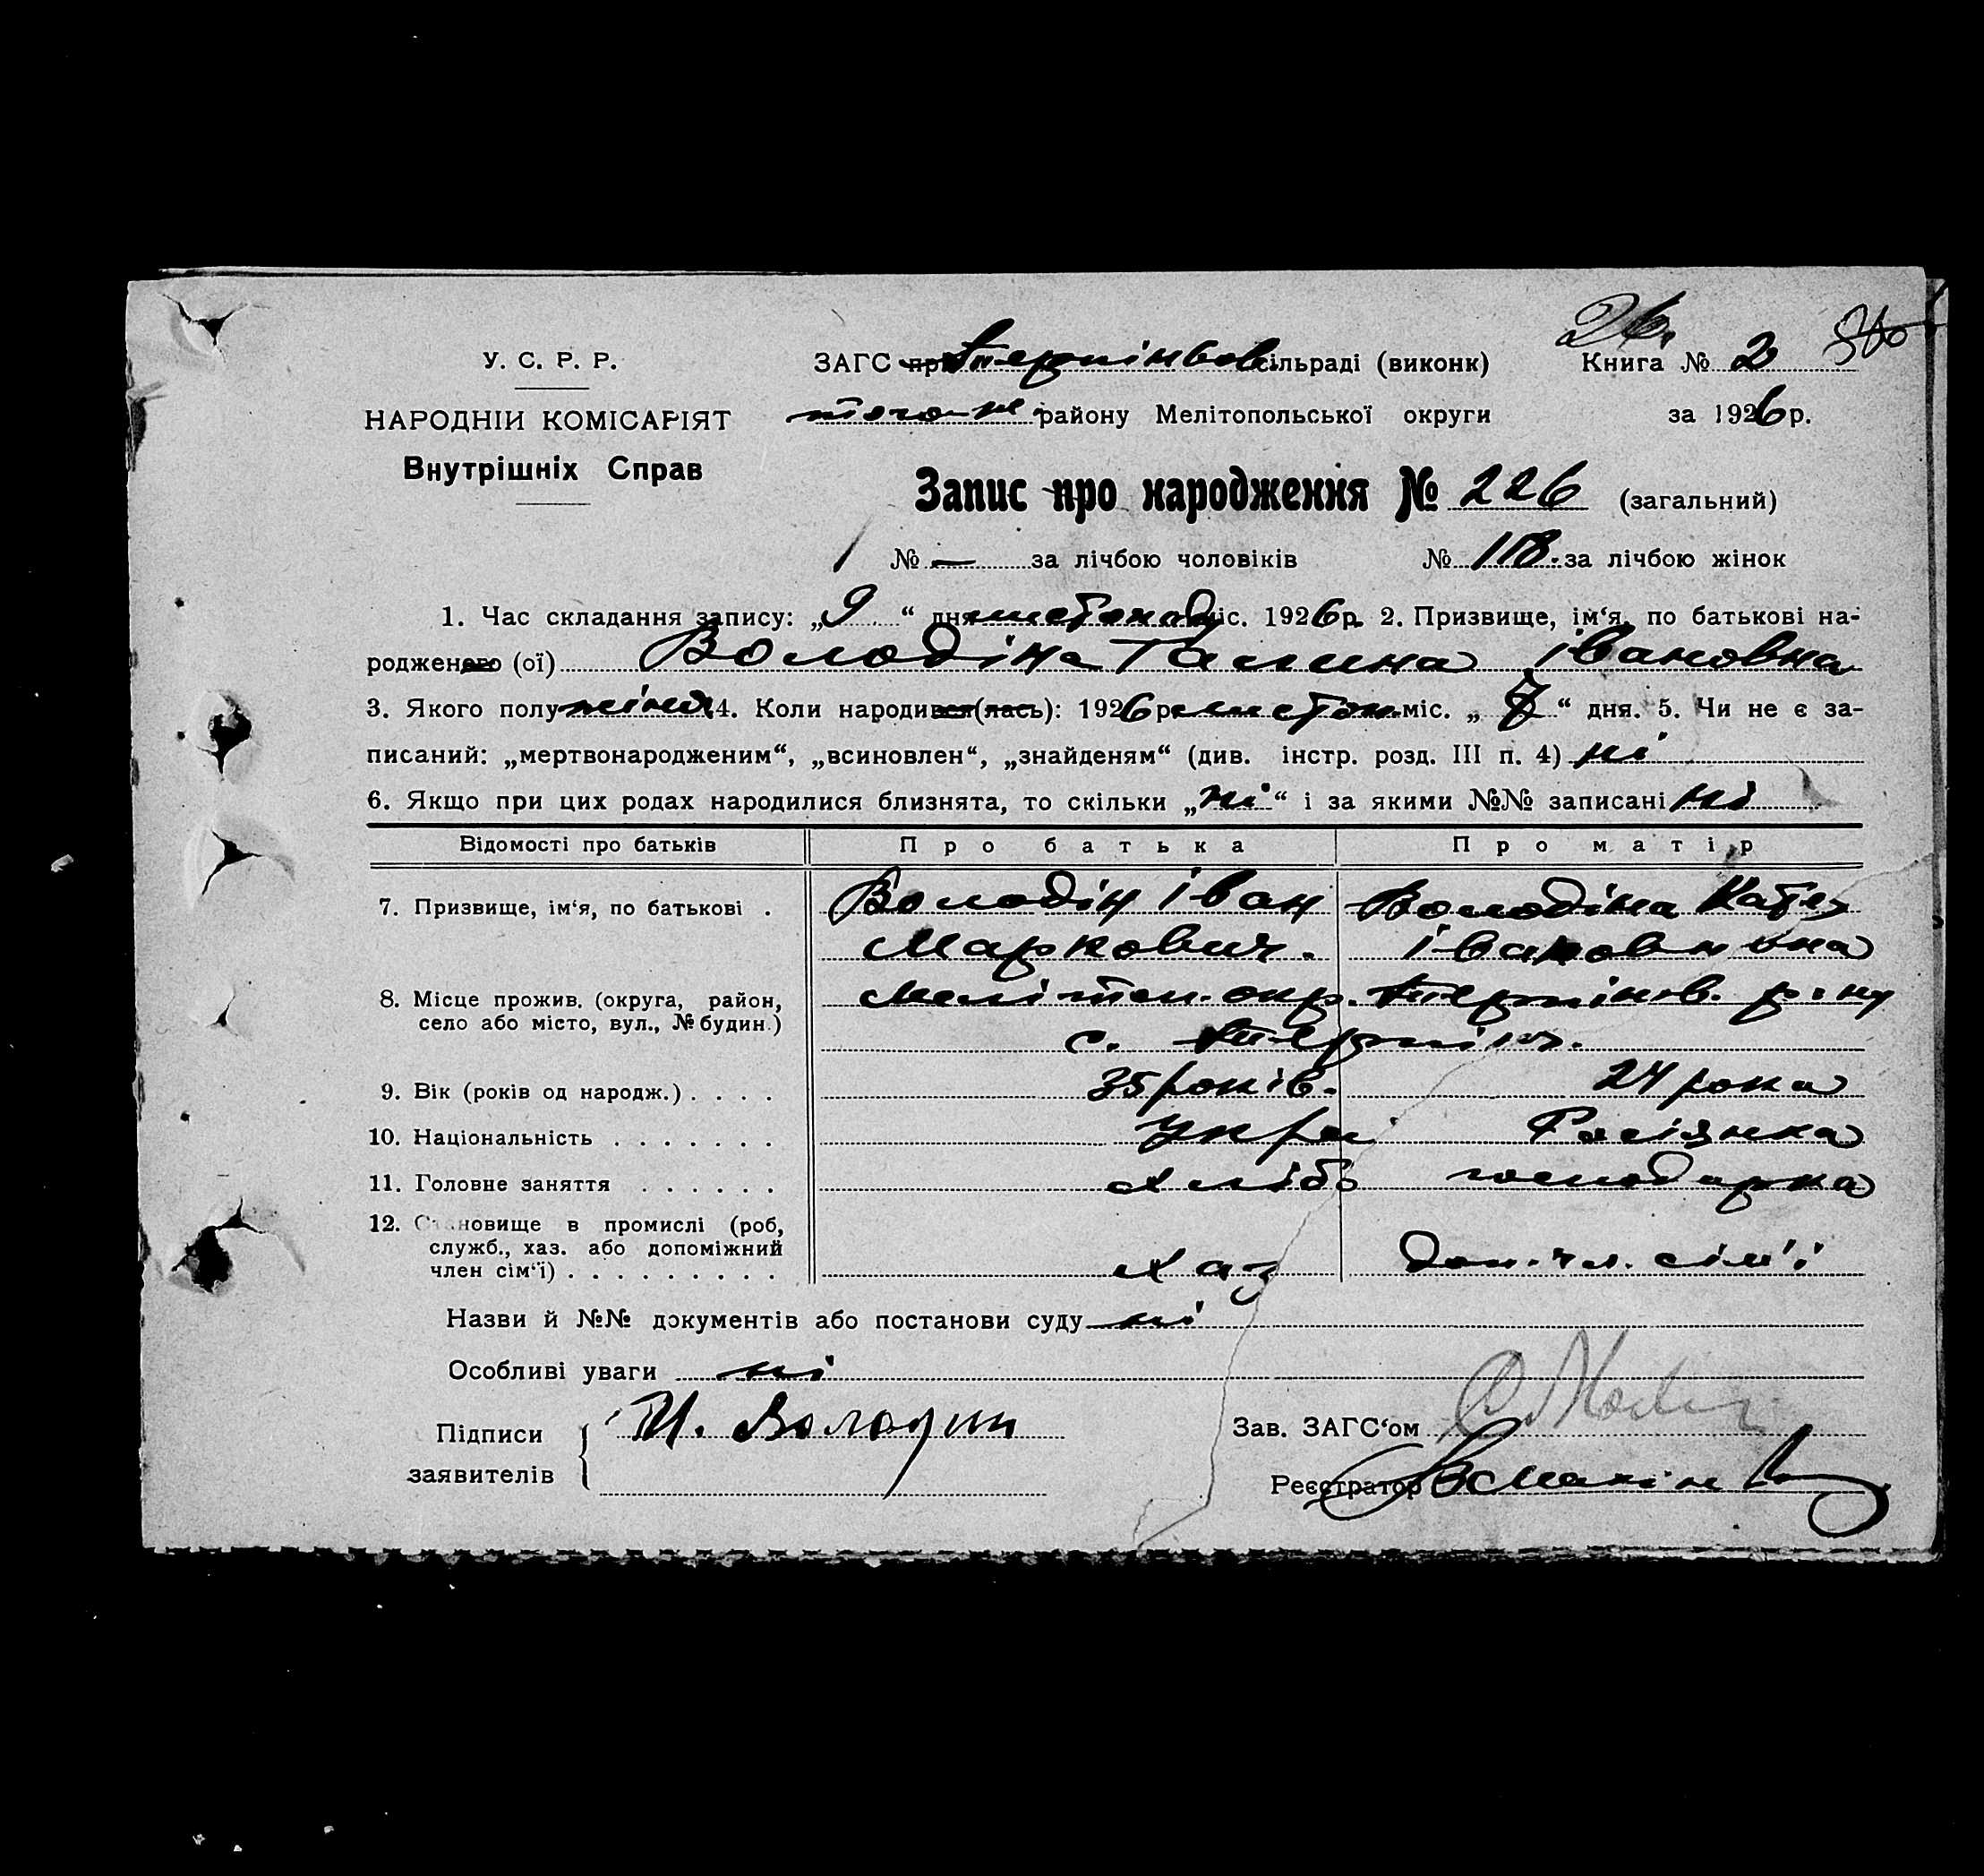 26
У. С. Р. Р.
ЗАГС при сільраді (виконк)
Книга № 2
НАРОДНІЙ КОМІСАРІЯТ
району Мелітопольської округи
за 1926 р.
Внутрішніх Справ
Запис про народження № 226 (загальний)
№ — за лічбою чоловіків № 118 за лічбою жінок
1. Час складання запису: „9“ дня листопад міс. 1926 р. 2. Призвище, ім‘я, по батькові на-
родженого (ої) Володіна Галина Івановна
3. Якого полу жіноч 4. Коли народився (лась): 1926 р. листоп. міс. „7“ дня. 5. Чи не є за-
писаний: „мертвонародженим“, „всиновлен“, „знайденям“ (див. інстр. розд. III п. 4) ні
6. Якщо при цих родах народилися близнята, то скільки „ні“ і за якими №№ записані ні
Відомості про батьків Про батька Про матір
7. Призвище, ім‘я, по батькові . Володін Іван Володіна Катер
Маркович. Івановна
8. Місце прожив. (округа, район, Мелітоп. окр. р-ну
село або місто, вул., № будин.) с.
9. Вік (років од народж.) . . . . 35 років. 24 рока
10. Національність . . . . . . . Укра Росіянка
11. Головне заняття . . . . . . Хлібо господарка
12. Становище в промислі (роб,
служб., хаз. або допоміжний
член сім‘ї) . . . . . . . . . Хаз доп. чл. сім'ї
Назви й №№ документів або постанови суду ні
Особливі уваги ні
Підписи
заявителів
И. Володин
Зав. ЗАГС‘ом
Реєстратор